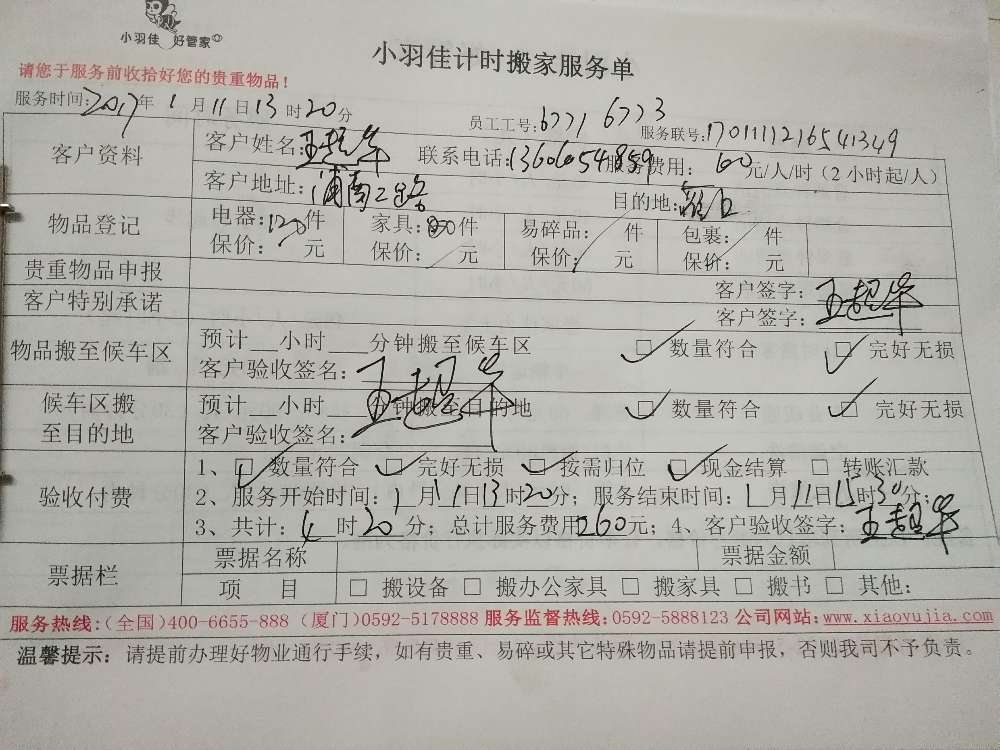 小羽佳 好管家
小羽佳计时搬家服务单
请您于服务前收拾好您的贵重物品！
服务时间：2017年1月11日13时20分 员工工号：6771 6773 服务联号：1701111216541349
客户资料 客户姓名：王超华 联系电话：13606054859 服务费用：60元/人/时（2小时起/人）
客户地址：浦南二路 目的地：
物品登记 电器：件 家具：件 易碎品：件 包裹：件
保价：元 保价：元 保价：元 保价：元
贵重物品申报 客户签字：王超华
客户特别承诺 客户签字：
物品搬至候车区 预计__小时___分钟搬至候车区 ☑ 数量符合 ☑ 完好无损
客户验收签名：王超华
候车区搬至目的地 预计__小时 分钟搬至目的地 ☑ 数量符合 ☑ 完好无损
客户验收签名：王超华
验收付费 1、☑ 数量符合 ☑ 完好无损 ☑ 按需归位 ☑ 现金结算 □ 转账汇款
2、服务开始时间：1月11日13时20分；服务结束时间：1月11日15时30分；
3、共计：4时20分；总计服务费用260元；4、客户验收签字：王超华
票据栏 票据名称 票据金额
项 目 □ 搬设备 □ 搬办公家具 □ 搬家具 □ 搬书 □ 其他：
服务热线：（全国）400-6655-888（厦门）0592-5178888 服务监督热线：0592-5888123 公司网站：www.xiaoyujia.com
温馨提示：请提前办理好物业通行手续，如有贵重、易碎或其它特殊物品请提前申报，否则我司不予负责。